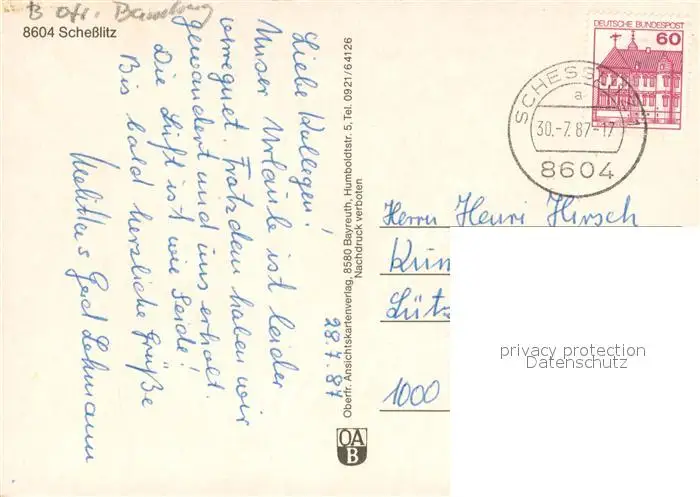 B Ofr. Bamberg
8604 Scheßlitz
Liebe Kollegen!
Unser Urlaub ist leider
verregnet. Trotzdem haben wir
gewandert und uns erholt.
Die Luft ist wie Seide!
Bis bald herzliche Grüße
Gerd Lehmann
28.7.87
Oberfr. Ansichtskartenverlag, 8580 Bayreuth, Humboldtstr. 5, Tel. 0921/64126
Nachdruck verboten
OA
B
DEUTSCHE BUNDESPOST
60
SCHESSLITZ 1
a
30.-7.87-17
8604
Herrn Henri Hirsch
Lütz
1000
privacy protection
Datenschutz